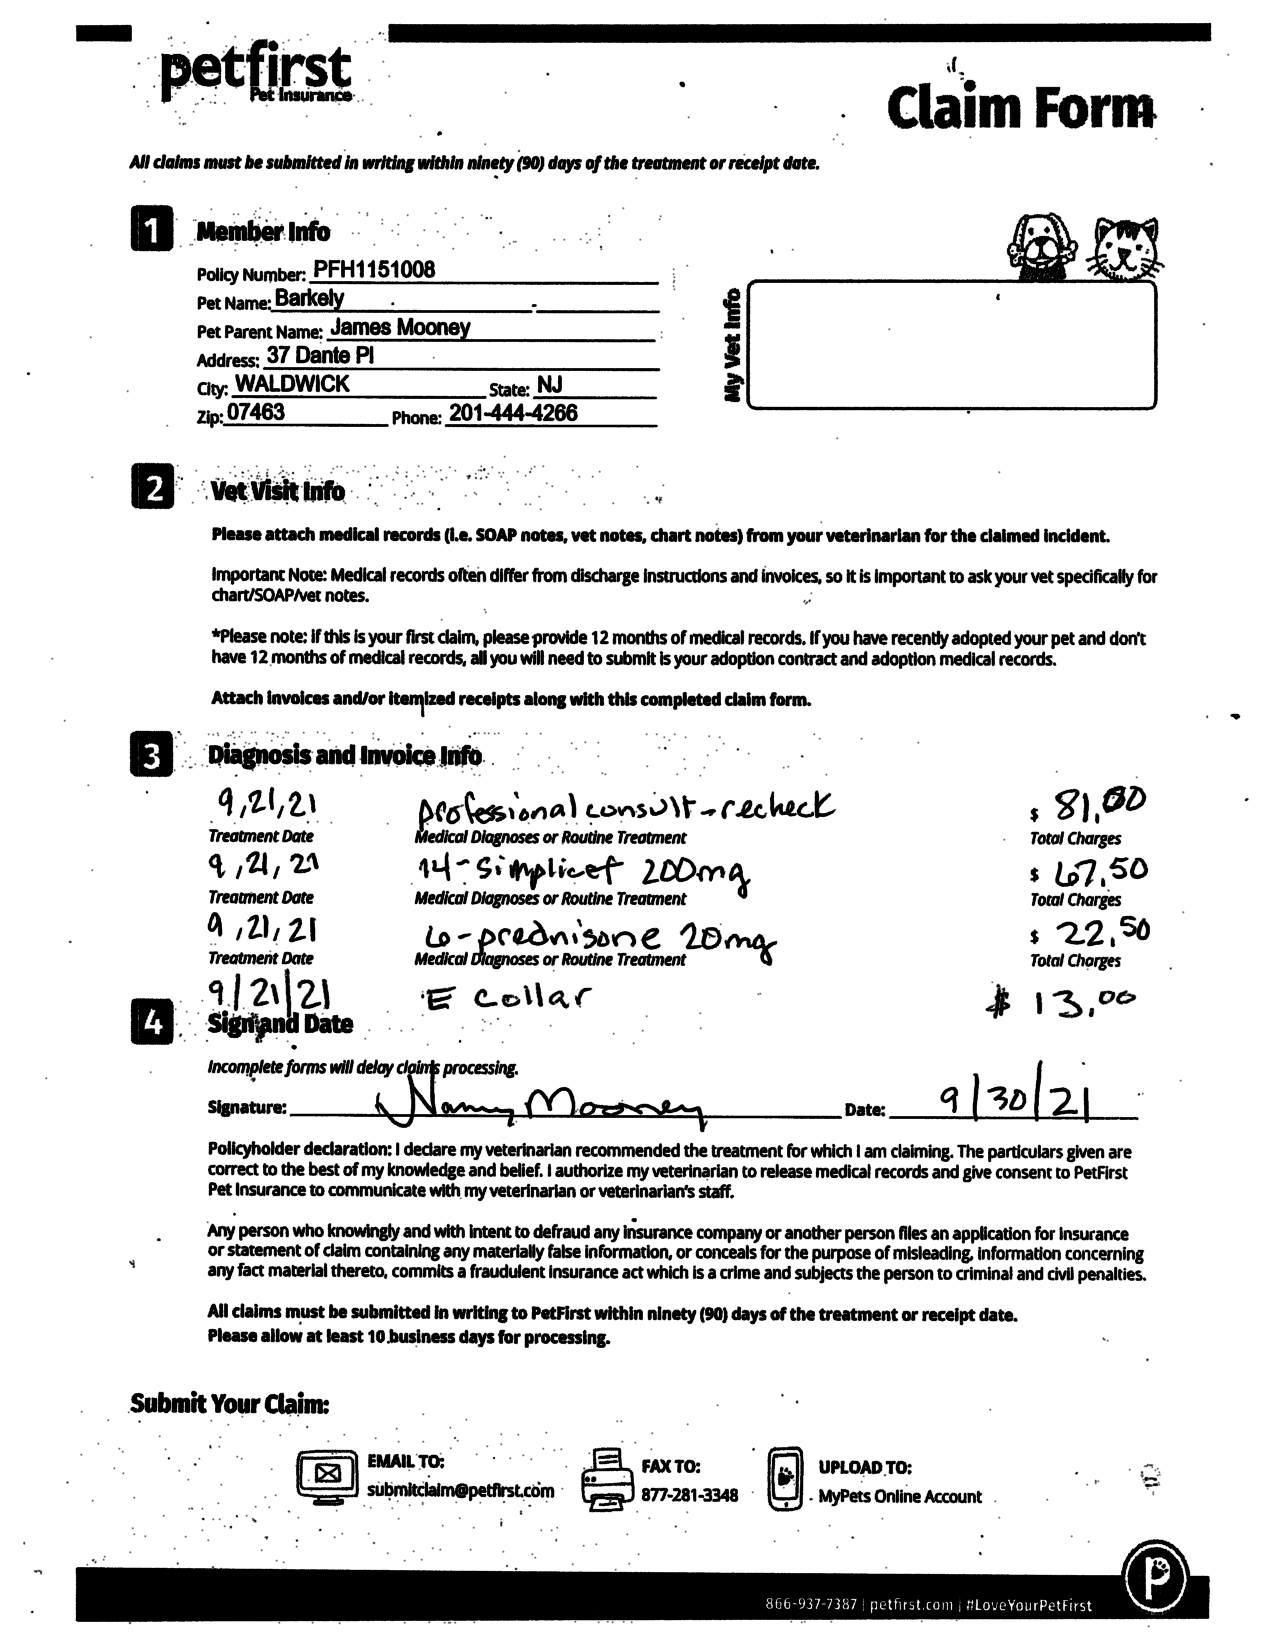 petfirst
Pet Insurance
Claim Form
All claims must be submitted in writing within ninety (90) days of the treatment or receipt date.
1 Member Info
Policy Number: PFH1151008
Pet Name: Barkely
Pet Parent Name: James Mooney
Address: 37 Dante Pl
City: WALDWICK State: NJ
Zip: 07463 Phone: 201-444-4266
My Vet Info
2 Vet Visit Info
Please attach medical records (i.e. SOAP notes, vet notes, chart notes) from your veterinarian for the claimed incident.
Important Note: Medical records often differ from discharge instructions and invoices, so it is important to ask your vet specifically for
chart/SOAP/vet notes.
*Please note: If this is your first claim, please provide 12 months of medical records. If you have recently adopted your pet and don't
have 12 months of medical records, all you will need to submit is your adoption contract and adoption medical records.
Attach invoices and/or itemized receipts along with this completed claim form.
3 Diagnosis and Invoice Info
9,21,21 professional consult-recheck $ 81.00
Treatment Date Medical Diagnoses or Routine Treatment Total Charges
9,21,21 14-Simplicef 200mg $ 67.50
Treatment Date Medical Diagnoses or Routine Treatment Total Charges
9,21,21 6-prednisone 20mg $ 22.50
Treatment Date Medical Diagnoses or Routine Treatment Total Charges
9/21/21 E collar $ 13.00
4 Sign and Date
Incomplete forms will delay claims processing.
Signature: Nancy Mooney Date: 9/30/21
Policyholder declaration: I declare my veterinarian recommended the treatment for which I am claiming. The particulars given are
correct to the best of my knowledge and belief. I authorize my veterinarian to release medical records and give consent to PetFirst
Pet Insurance to communicate with my veterinarian or veterinarian's staff.
Any person who knowingly and with intent to defraud any insurance company or another person files an application for insurance
or statement of claim containing any materially false information, or conceals for the purpose of misleading, information concerning
any fact material thereto, commits a fraudulent insurance act which is a crime and subjects the person to criminal and civil penalties.
All claims must be submitted in writing to PetFirst within ninety (90) days of the treatment or receipt date.
Please allow at least 10 business days for processing.
Submit Your Claim:
EMAIL TO: FAX TO: UPLOAD TO:
submitclaim@petfirst.com 877-281-3348 MyPets Online Account
P
866-937-7387 | petfirst.com | #LoveYourPetFirst